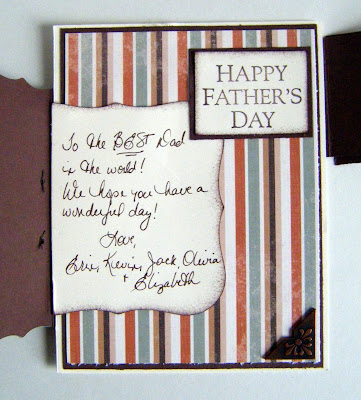 HAPPY
FATHER'S
DAY
To the BEST Dad
in the world!
We hope you have a
wonderful day!
Love,
Erin, Kevin, Jack, Olivia
+ Elizabeth